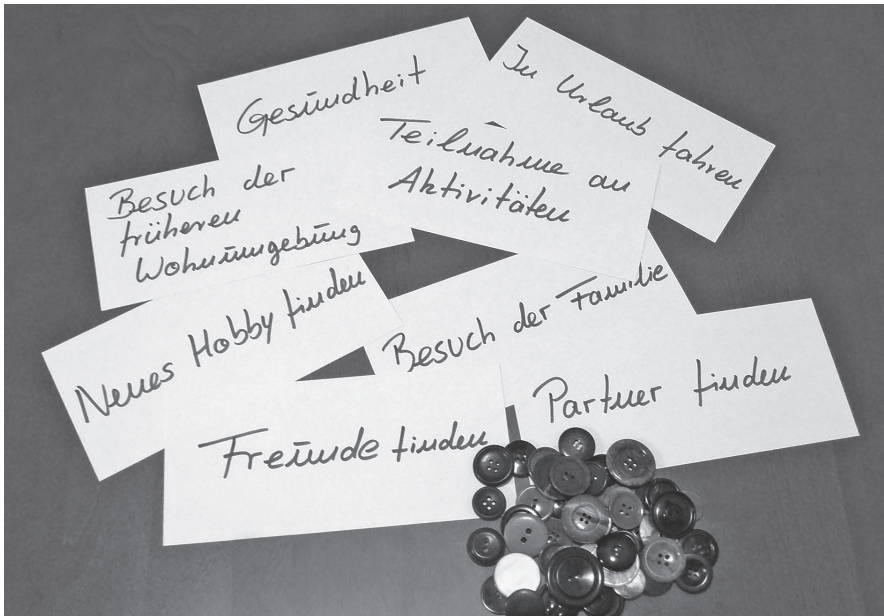 Gesundheit
In Urlaub fahren
Teilnahme an
Aktivitäten
Besuch der
früheren
Wohnumgebung
Neues Hobby finden
Besuch der Familie
Partner finden
Freunde finden